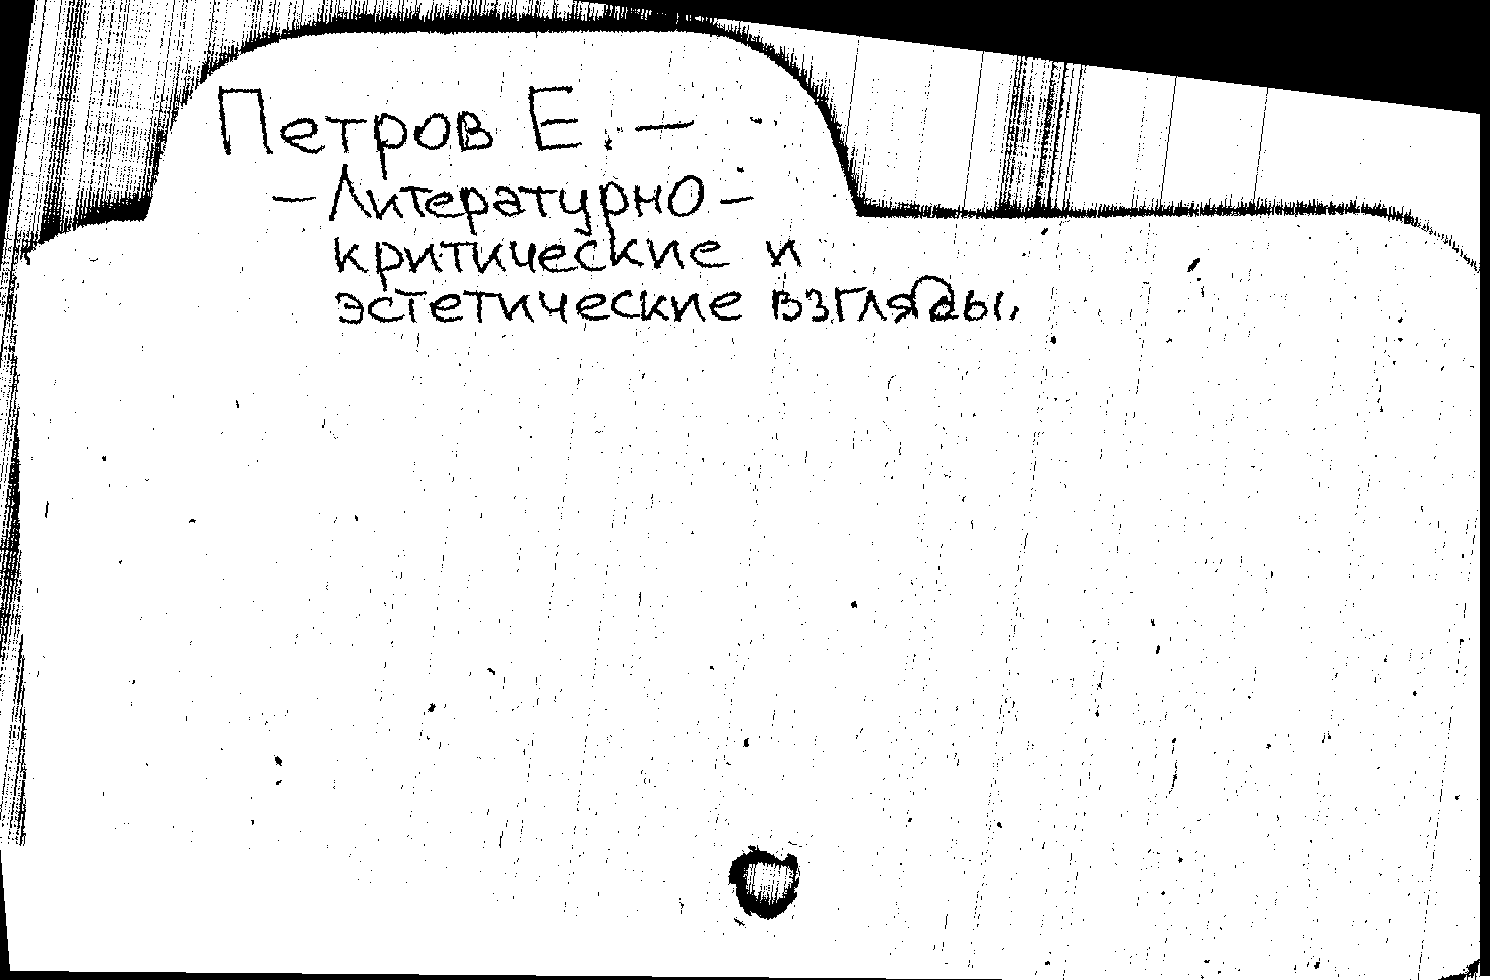 Петров Е. —
— Литературно-
критические и
эстетические взгляды.